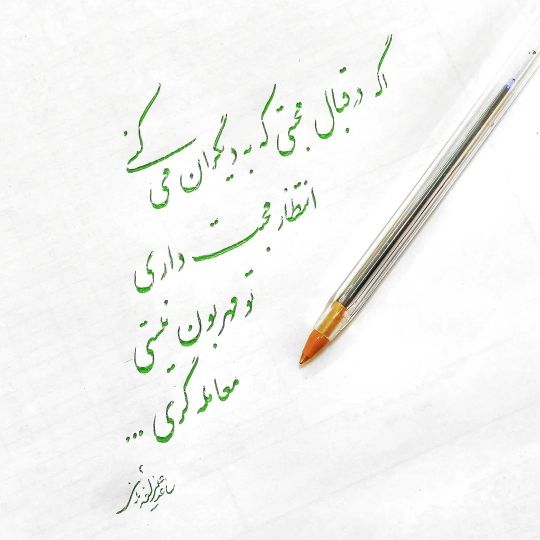 اگه در قبال محبتی که به دیگران می کنے
انتظار محبت داری
تو مهربون نیستی
معامله گری ...